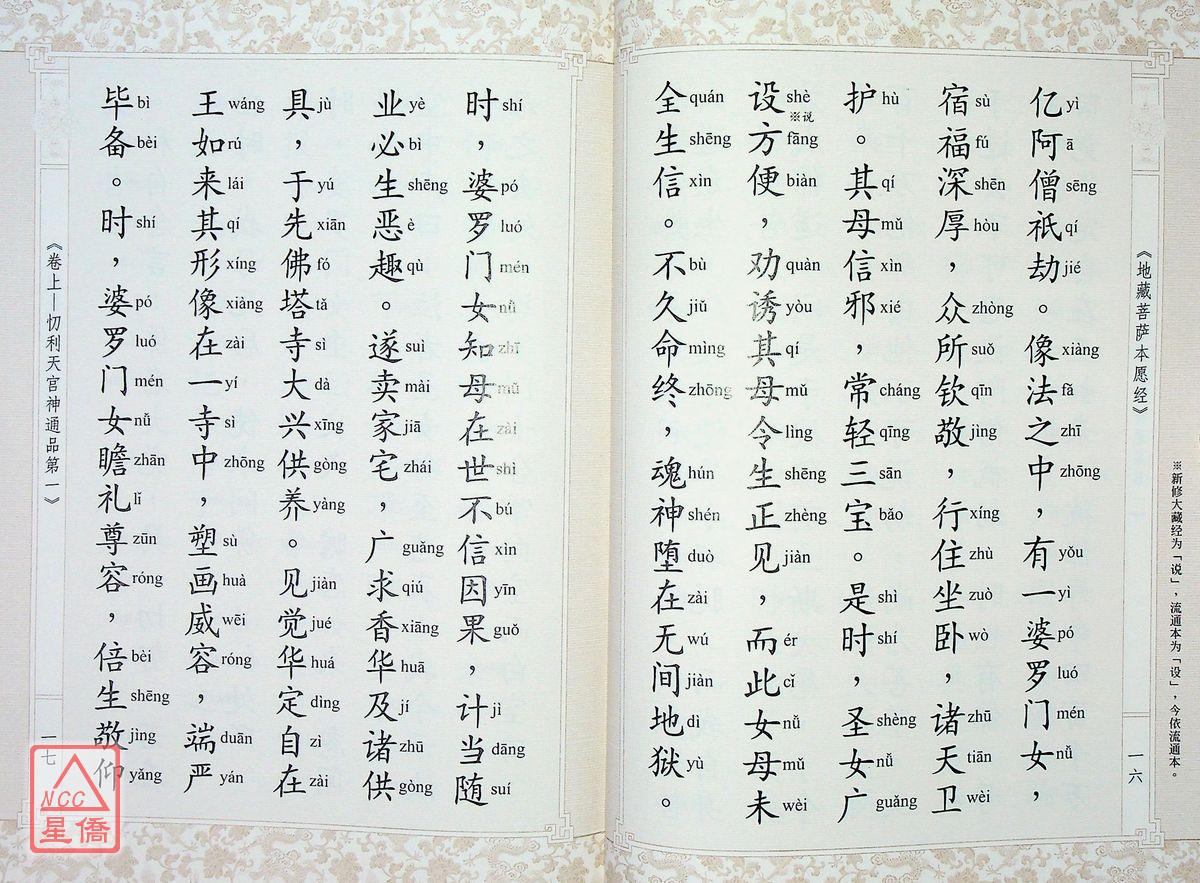 《地藏菩萨本愿经》
一六
亿yì阿ā僧sēng祇qí劫jié。像xiàng法fǎ之zhī中zhōng，有yǒu一yì婆pó罗luó门mén女nǚ，
宿sù福fú深shēn厚hòu，众zhòng所suǒ钦qīn敬jìng，行xíng住zhù坐zuò卧wò，诸zhū天tiān卫wèi
护hù。其qí母mǔ信xìn邪xié，常cháng轻qīng三sān宝bǎo。是shì时shí，圣shèng女nǚ广guǎng
设shè※说方fāng便biàn，劝quàn诱yòu其qí母mǔ令lìng生shēng正zhèng见jiàn，而ér此cǐ女nǚ母mǔ未wèi
全quán生shēng信xìn。不bù久jiǔ命mìng终zhōng，魂hún神shén堕duò在zài无wú间jiàn地dì狱yù。
※新修大藏经为「说」，流通本为「设」，今依流通本。
时shí，婆pó罗luó门mén女nǚ知zhī母mǔ在zài世shì不bú信xìn因yīn果guǒ，计jì当dāng随suí
业yè必bì生shēng恶è趣qù。遂suì卖mài家jiā宅zhái，广guǎng求qiú香xiāng华huā及jí诸zhū供gòng
具jù，于yú先xiān佛fó塔tǎ寺sì大dà兴xīng供gòng养yàng。见jiàn觉jué华huá定dìng自zì在zài
王wáng如rú来lái其qí形xíng像xiàng在zài一yí寺sì中zhōng，塑sù画huà威wēi容róng，端duān严yán
毕bì备bèi。时shí，婆pó罗luó门mén女nǚ瞻zhān礼lǐ尊zūn容róng，倍bèi生shēng敬jìng仰yǎng
《卷上—忉利天宫神通品第一》
一七
NCC
星侨